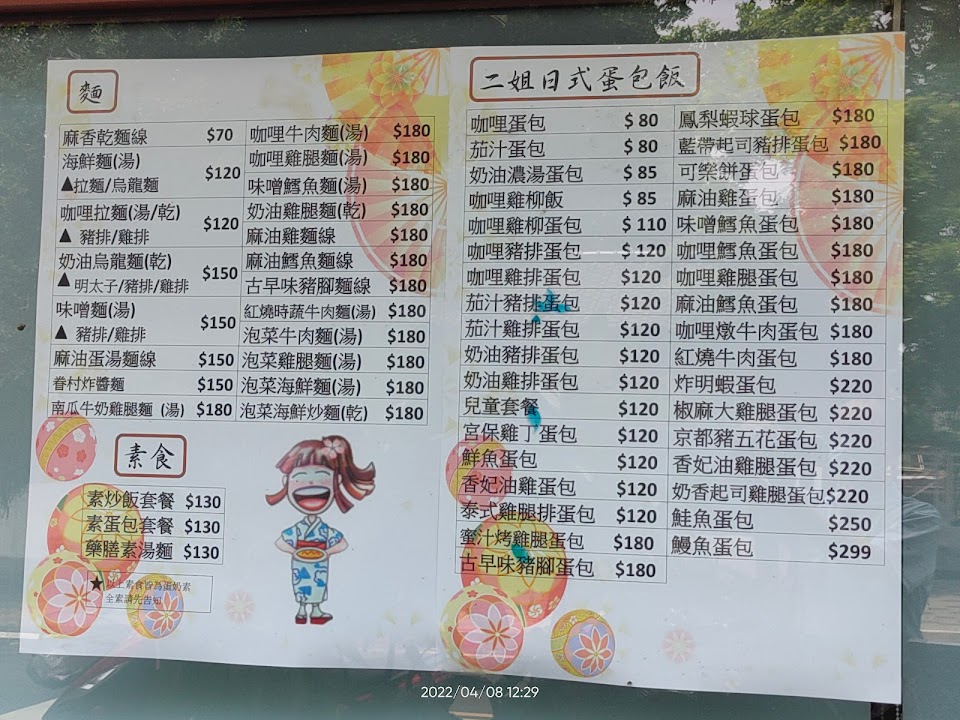 麵
麻香乾麵線 $70
海鮮麵(湯)
▲拉麵/烏龍麵 $120
咖哩拉麵(湯/乾)
▲ 豬排/雞排 $120
奶油烏龍麵(乾)
▲明太子/豬排/雞排 $150
味噌麵(湯)
▲ 豬排/雞排 $150
麻油蛋湯麵線 $150
眷村炸醬麵 $150
南瓜牛奶雞腿麵 (湯) $180
咖哩牛肉麵(湯) $180
咖哩雞腿麵(湯) $180
味噌鱈魚麵(湯) $180
奶油雞腿麵(乾) $180
麻油雞麵線 $180
麻油鱈魚麵線 $180
古早味豬腳麵線 $180
紅燒時蔬牛肉麵(湯) $180
泡菜牛肉麵(湯) $180
泡菜雞腿麵(湯) $180
泡菜海鮮麵(湯) $180
泡菜海鮮炒麵(乾) $180
素食
素炒飯套餐 $130
素蛋包套餐 $130
藥膳素湯麵 $130
★以上素食皆為蛋奶素
全素請先告知
二姐日式蛋包飯
咖哩蛋包 $ 80
茄汁蛋包 $ 80
奶油濃湯蛋包 $ 85
咖哩雞柳飯 $ 85
咖哩雞柳蛋包 $ 110
咖哩豬排蛋包 $ 120
咖哩雞排蛋包 $120
茄汁豬排蛋包 $120
茄汁雞排蛋包 $120
奶油豬排蛋包 $120
奶油雞排蛋包 $120
兒童套餐 $120
宮保雞丁蛋包 $120
鮮魚蛋包 $120
香妃油雞蛋包 $120
泰式雞腿排蛋包 $120
蜜汁烤雞腿蛋包 $180
古早味豬腳蛋包 $180
鳳梨蝦球蛋包 $180
藍帶起司豬排蛋包 $180
可樂餅蛋包 $180
麻油雞蛋包 $180
味噌鱈魚蛋包 $180
咖哩鱈魚蛋包 $180
咖哩雞腿蛋包 $180
麻油鱈魚蛋包 $180
咖哩燉牛肉蛋包 $180
紅燒牛肉蛋包 $180
炸明蝦蛋包 $220
椒麻大雞腿蛋包 $220
京都豬五花蛋包 $220
香妃油雞腿蛋包 $220
奶香起司雞腿蛋包$220
鮭魚蛋包 $250
鰻魚蛋包 $299
2022/04/08 12:29